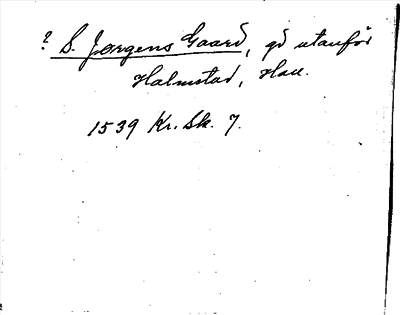 ? S. Jørgens Gaard, gd utanför
Halmstad, Hall.
1539 Kr. Sk. 7.